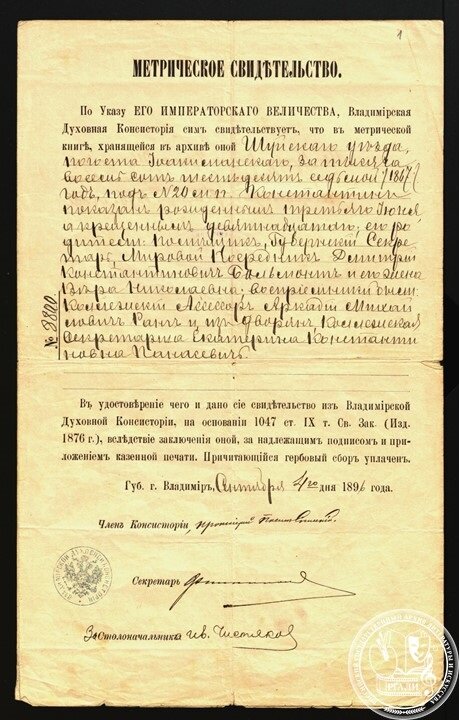 1
МЕТРИЧЕСКОЕ СВИДѢТЕЛЬСТВО.
По Указу ЕГО ИМПЕРАТОРСКАГО ВЕЛИЧЕСТВА, Владимірская
Духовная Консисторія симъ свидѣтельствуетъ, что въ метрической
книгѣ, хранящейся въ архивѣ оной Шуйскаго уѣзда,
погоста Іоаннманскаго, за тысяча
восемь сотъ шестьдесятъ седьмой /1867/
годъ, подъ №20 м.п. Константинъ
показанъ рожденнымъ третьяго Іюня,
а крещеннымъ девятнадцатаго; его ро-
дители: помѣщикъ, Губернскій Секре-
тарь, Мировой Посредникъ Дмитрій
Константиновичъ Бальмонтъ и его жена
Вѣра Николаевна; воспріемники были:
Коллежскій Ассесоръ Аркадій Михай-
ловичъ Ранъ и изъ дворянъ, Коллежская
Секретарша Екатерина Константи
новна Панасевичъ.
№ 9800
Въ удостовѣреніе чего и дано сіе свидѣтельство изъ Владимірской
Духовной Консисторіи, на основаніи 1047 ст. IX т. Св. Зак. (Изд.
1876 г.), вслѣдствіе заключенія оной, за надлежащимъ подписомъ и при-
ложеніемъ казенной печати. Причитающійся гербовый сборъ уплаченъ.
Губ. г. Владиміръ, Сентября дня 1896 года.
Членъ Консисторіи, протоіерей
Секретарь
За Столоначальника Ив. Чистяковъ
РГАЛИ